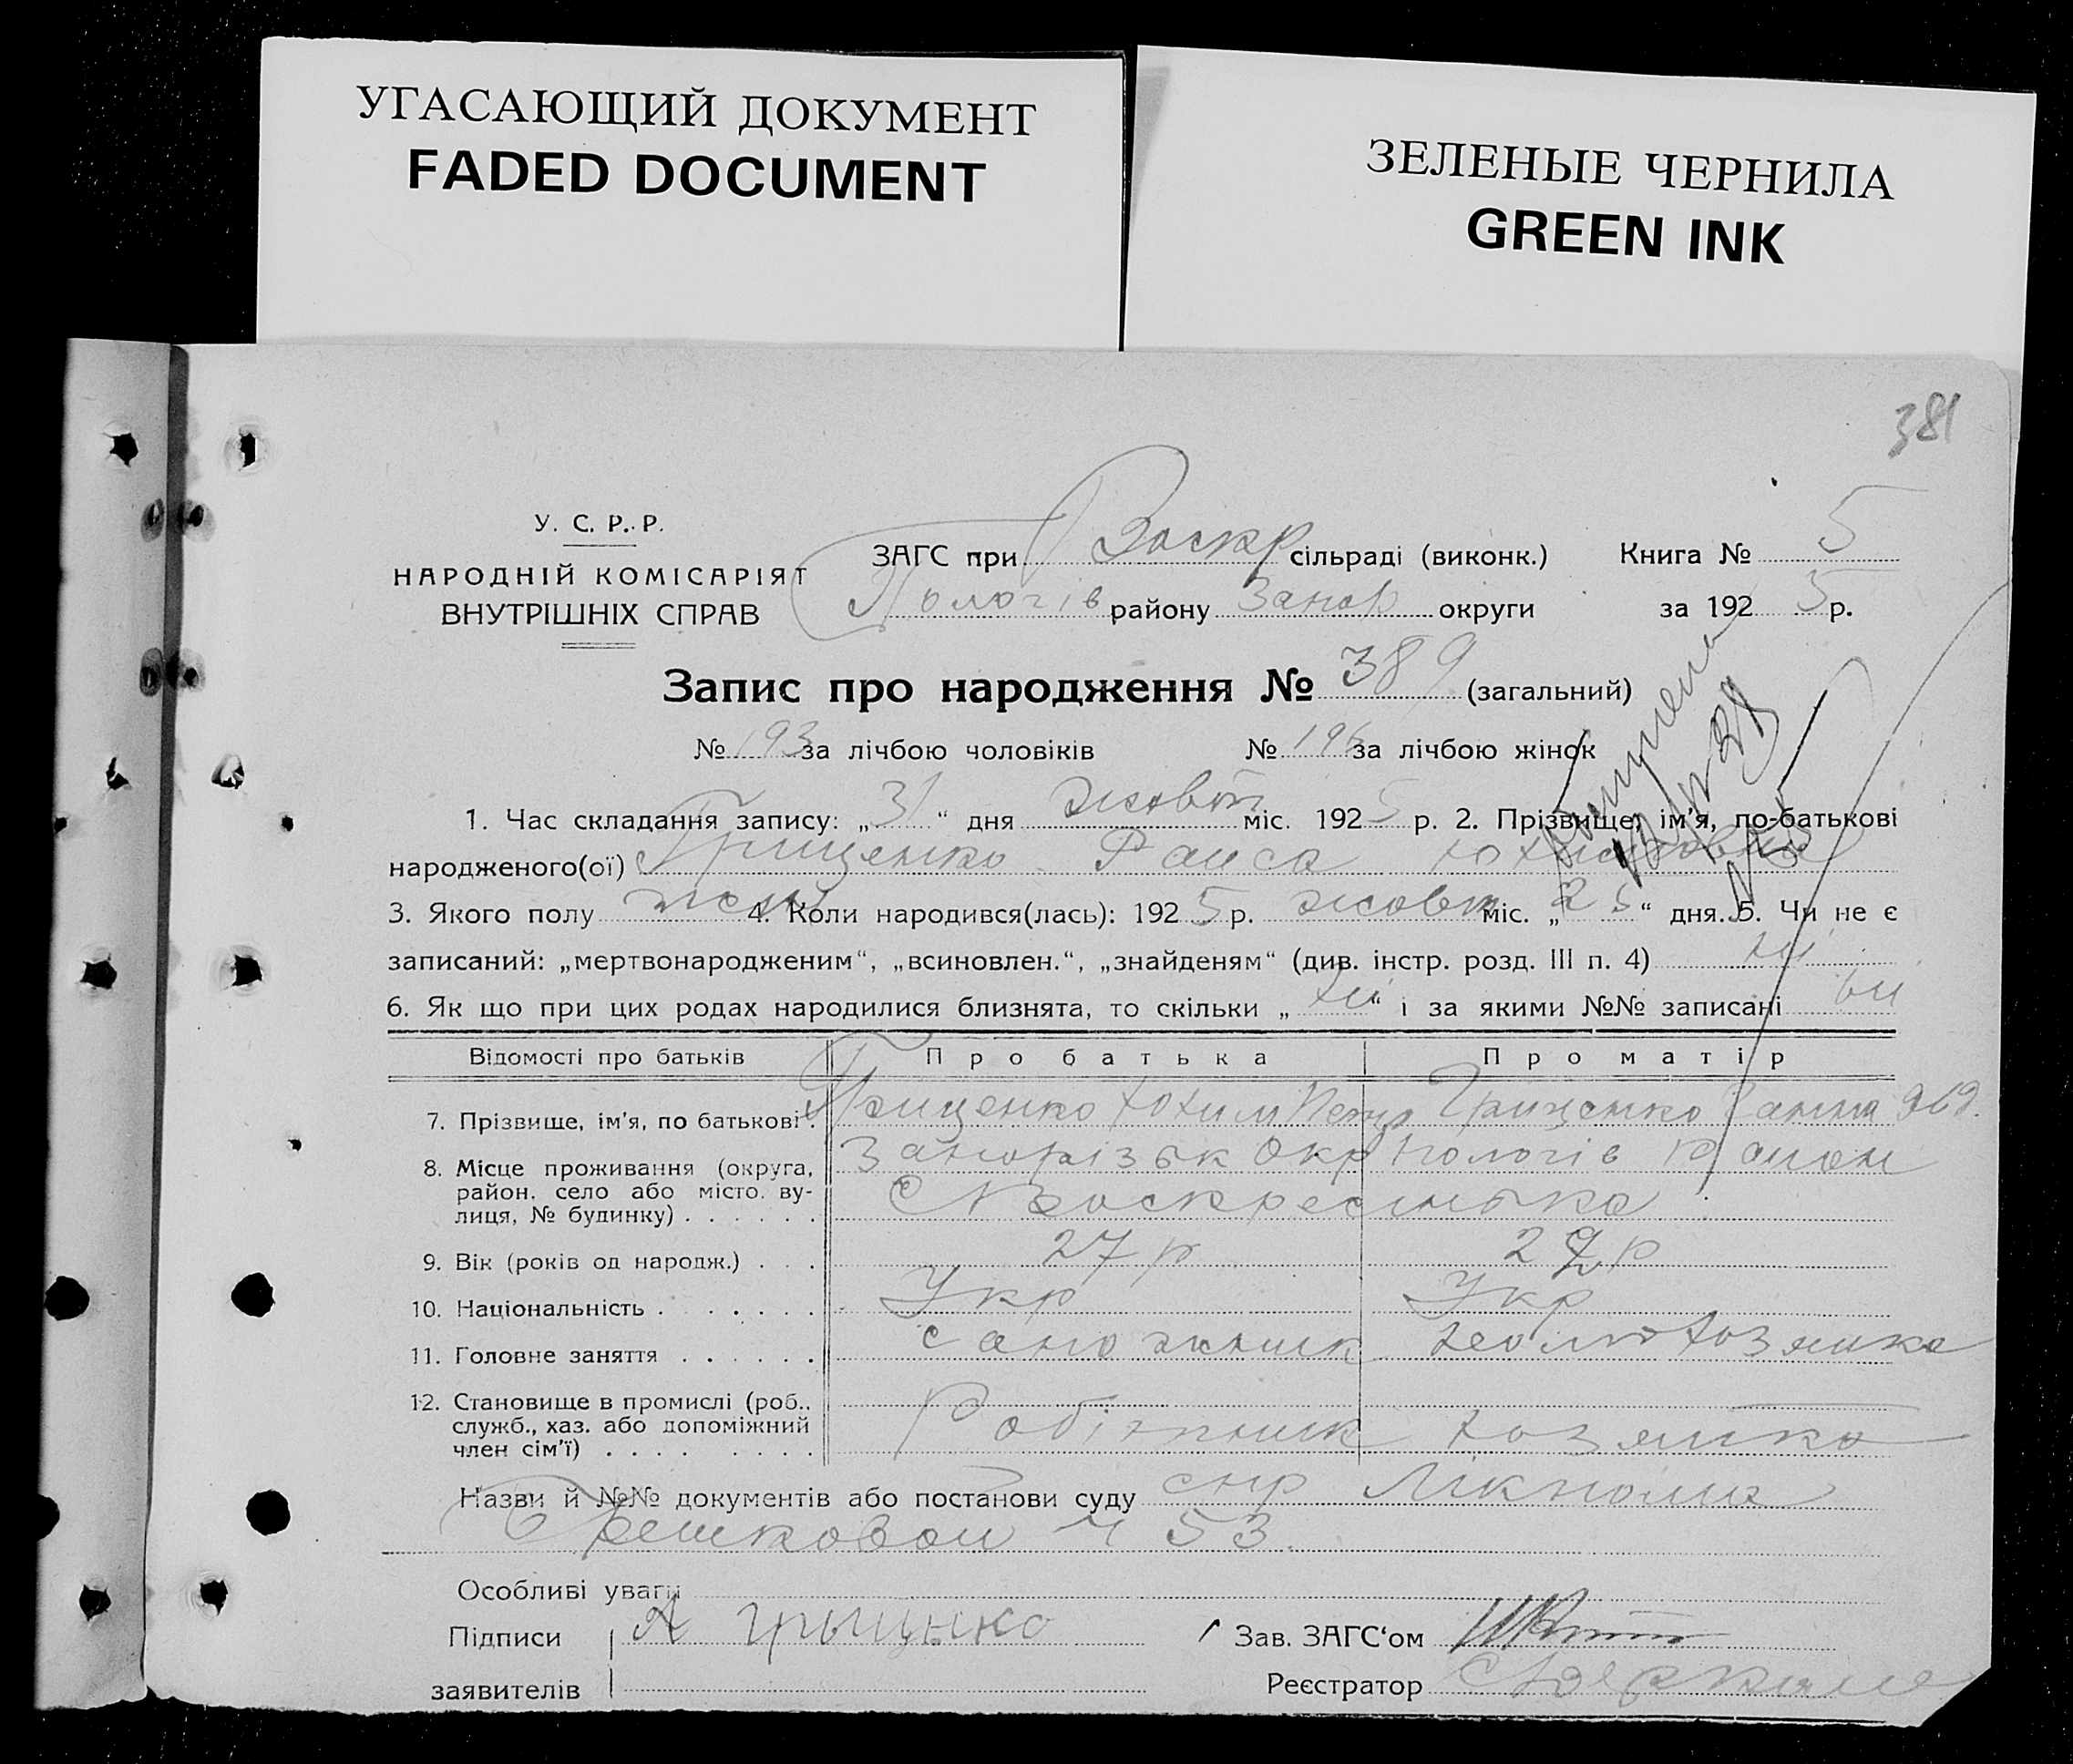 УГАСАЮЩИЙ ДОКУМЕНТ
FADED DOCUMENT
ЗЕЛЕНЫЕ ЧЕРНИЛА
GREEN INK
381
У. С. Р. Р.
НАРОДНІЙ КОМІСАРІЯТ
ВНУТРІШНІХ СПРАВ
ЗАГС при Воскр сільраді (виконк.) Книга № 5
Пологів району Запор округи за 192 5 р.
Запис про народження № 389 (загальний)
№ 193 за лічбою чоловіків № 196 за лічбою жінок
1. Час складання запису: „ 31 “ дня жовт міс. 192 5 р. 2. Прізвище, ім'я, по-батькові
народженого(ої) Грищенко Раиса Юхимовна
3. Якого полу жен 4. Коли народився(лась): 192 5 р. жовт міс. „ 25 “ дня. 5. Чи не є
записаний: „мертвонародженим“, „всиновлен.“, „знайденям“ (див. інстр. розд. III п. 4) ни
6. Як що при цих родах народилися близнята, то скільки „ ни “ і за якими №№ записані
Відомості про батьків Про батька Про матір
7. Прізвище, ім'я, по батькові . Грищенко Юхим Петр Грищенко Ганна
8. Місце проживання (округа, Запорізьк Окр Пологів Район
район, село або місто, ву-
лиця, № будинку) . . . . . . С Воскресинька
9. Вік (років од народж.) . . . 27 р 22 р
10. Національність . . . . . . Укр Укр
11. Головне заняття . . . . . . сапожник хозяйка
12. Становище в промислі (роб.,
служб., хаз. або допоміжний Робітник хозяйка
член сім'ї) . . . . . . . . .
Назви й №№ документів або постанови суду
53
Особливі уваги
Підписи А Грыщнко Зав. ЗАГС‘ом
заявителів Реєстратор